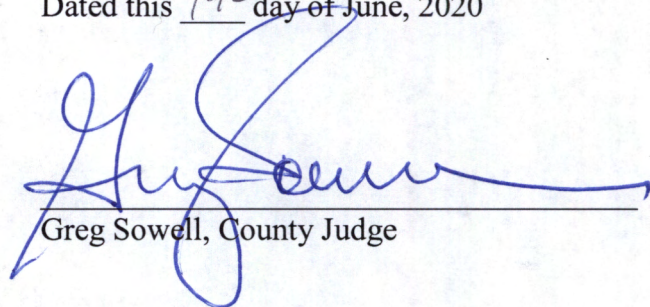 Dated this day of June, 2020
Greg Sowell
Greg Sowell, County Judge